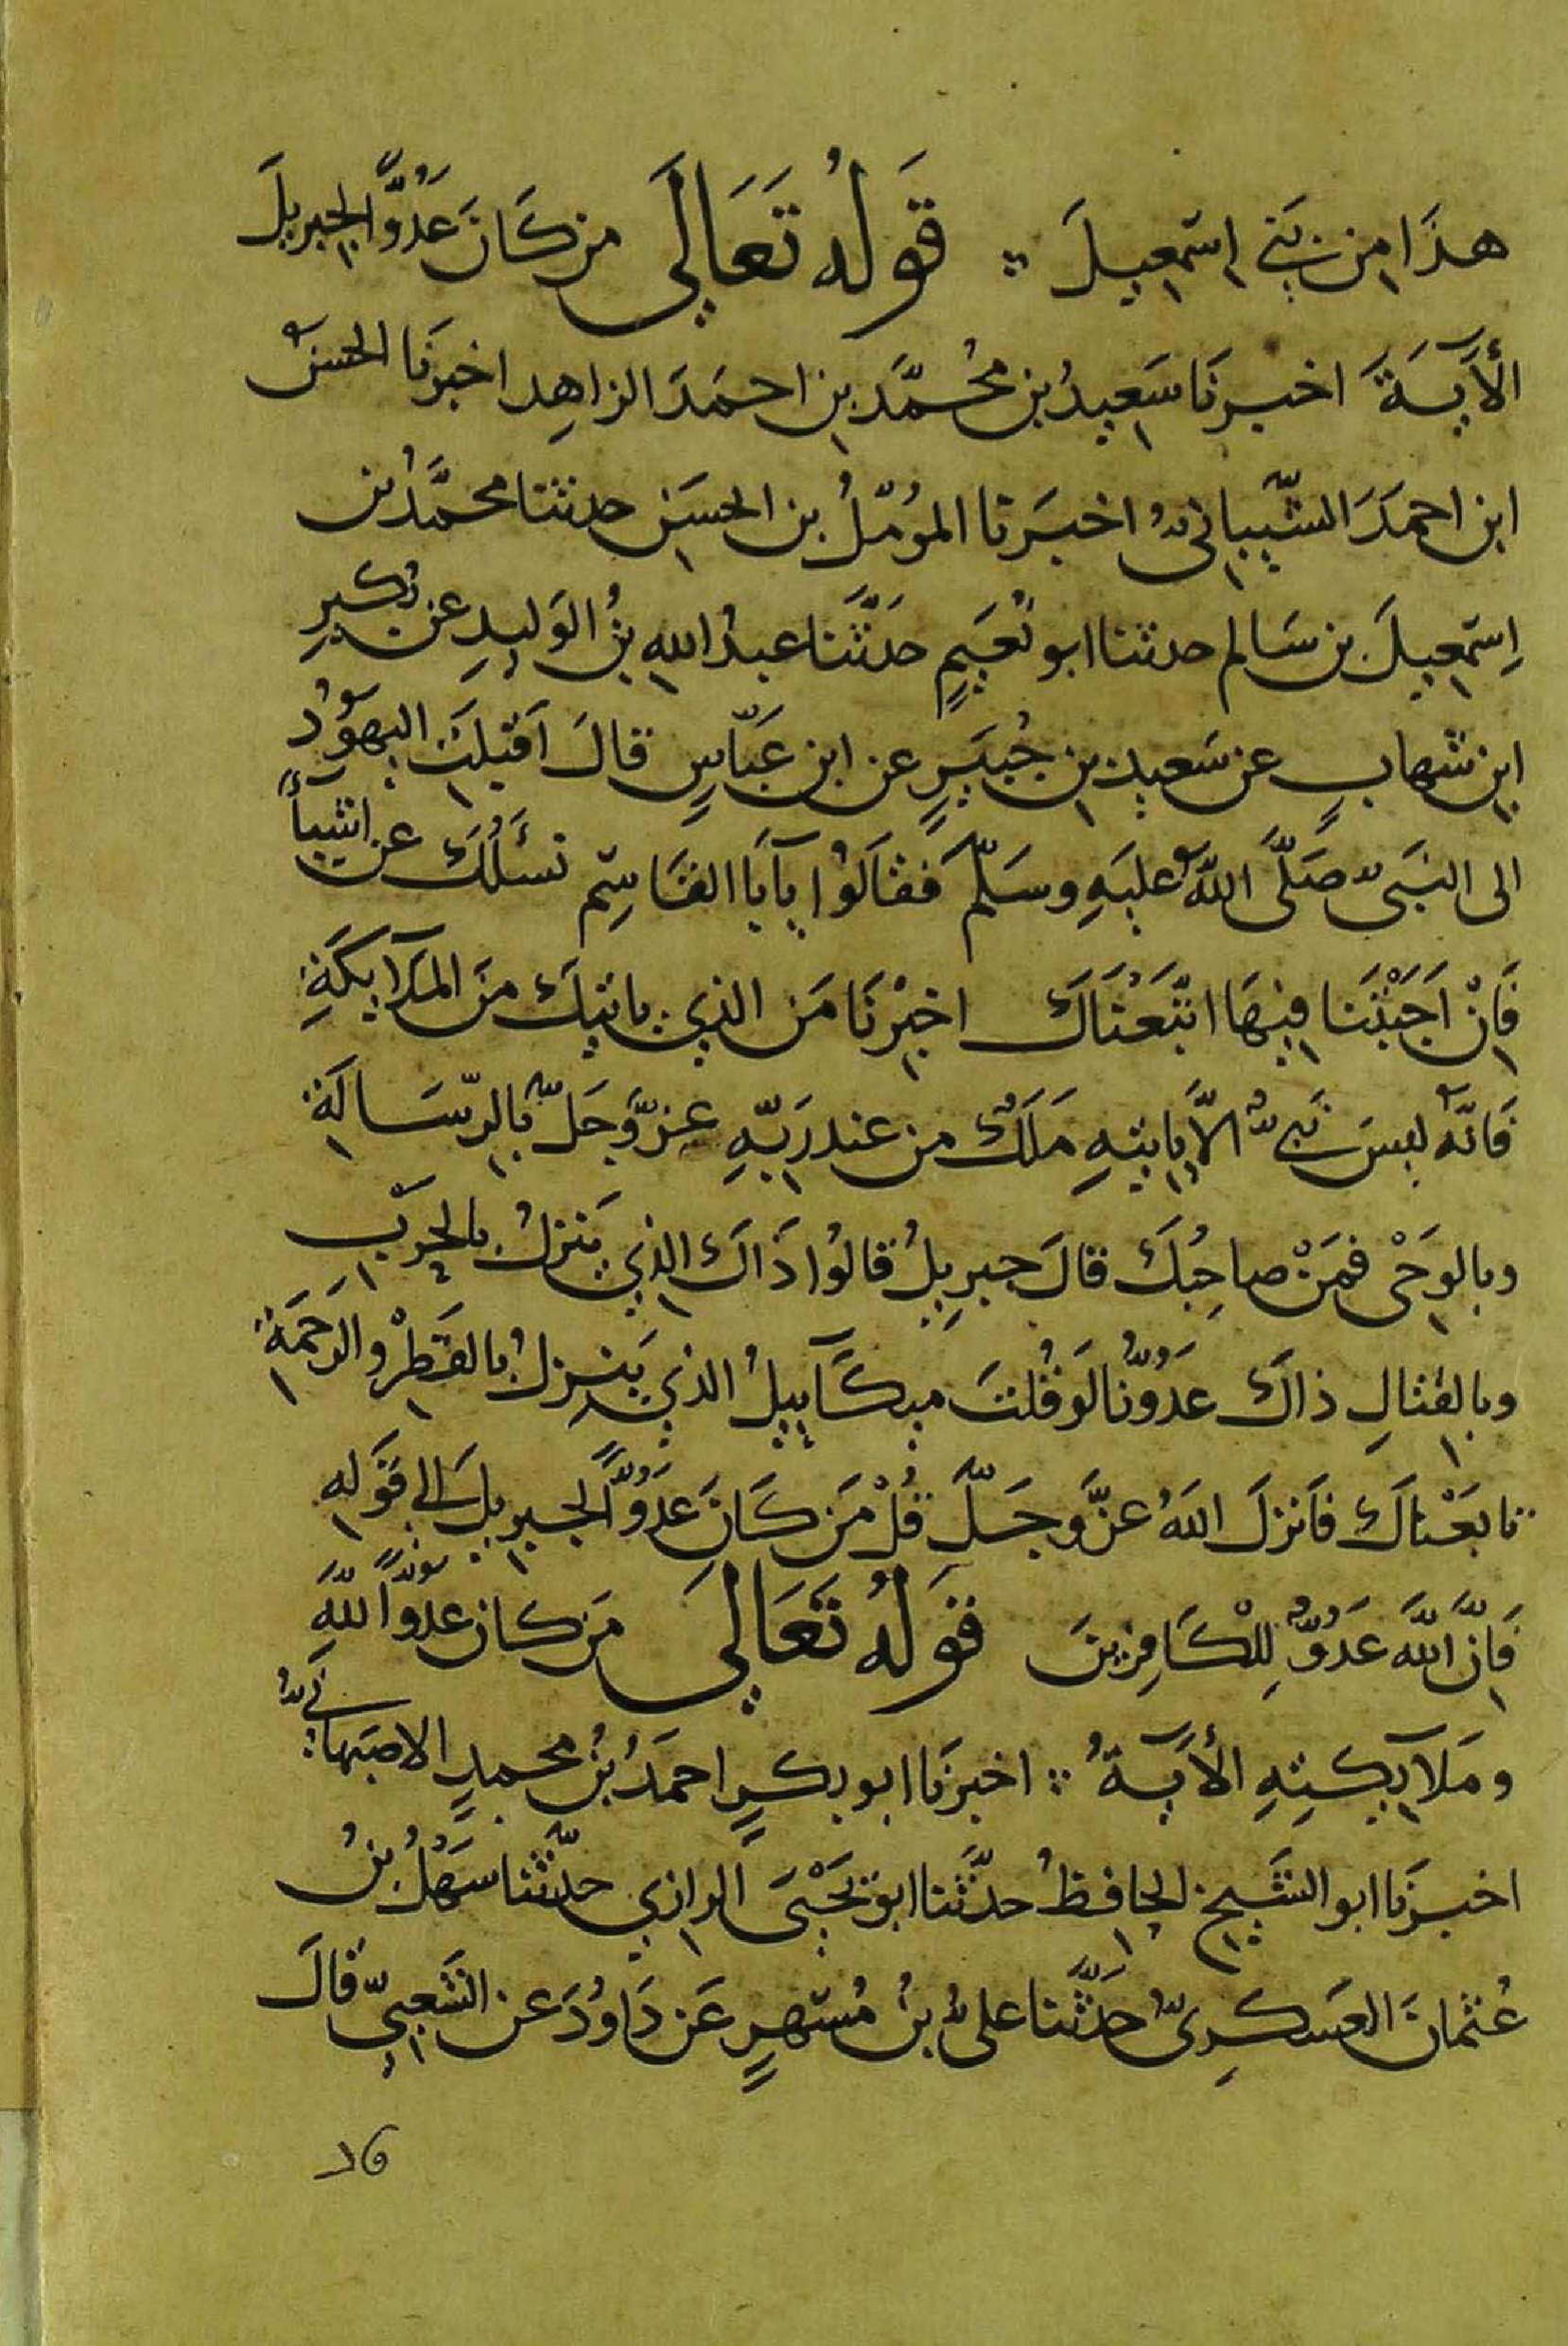 هذَا من بَنِي اِسمٰعِيلَ ∴ قَولُهُ تَعَالَى من كَانَ عَدُوًّا لِجِبرِيلَ
الأَيَةَ اخبرنَا سَعِيدُ بن محُمَّد بنِ احمَدَ الزاهِد اخبرَنَا الحسنُ
ابن احمَدَ الشَّيبانىُّ اخبَرَنا المؤمّلُ بن الحسَن حدثنا محمَّدُ بن
اِسمٰعِيلَ بن سَالم حدثنا ابو نُعَيمٍ حَدَّثَنا عبدُ اللهِ بنُ الوَليدِ عن بُكيرِ
ابنِ شهابٍ عن سَعِيدِ بنِ جُبَيرٍ عن ابنِ عَبّاسٍ قالَ اَقبلَتِ اليهوُدُ
الى النبَىِّ صَلَّى اللهُ عليَهِ وسَلّمَ فَقالَوُا يآ اَبَا القَاسِمِ نسئَلُكَ عن اشيآءَ
فَاِنْ اَجَبْتَنا فِيهَا اتّبَعْنَاكَ اخبِرْنَا مَن الذِي ياتِيكَ منَ المَلآئِكَةِ
فَاِنَّهُ لَيسَ نَبِىٌّ الاَّ يَاتِيهِ مَلَكٌ من عِندِ رَبِّهِ عزّوَجَلَّ بِالرّسَالَةِ
وبالوَحْىِ فمَنْ صاحِبُكَ قالَ جبرِيلُ قالُوا ذَاكَ الذِي يَنزلُ بالحَرْبِ
وبالقتالِ ذاكَ عَدُوُّنَا لَو قُلتَ ميكَآييلُ الذِي يَنزِلُ بالقَطْرِ والرَحمَةِ
تابَعْنَاكَ فاَنزلَ اللهُ عزَّ وجَلَّ قُلْ مَن كَانَ عَدُوًّا لِجِبرِيلَ الِى قَولِهِ
فَاِنَّ اللَّهَ عَدُوٌّ لِلْكَافِرِينَ قَولُهُ تَعَالَى مَن كان عَدُوًّا للَّهِ
ومَلآئِكتِهِ الأَيَةُ ∴ اخبرَنَا ابو بكرٍ احمَدُ بنُ محمدٍ الاصبَهانِىُّ
اخبرَنَا ابو الشَيخِ الحافِظُ حدَّثَنا ابو يَحْيَى الرازِي حدّثَنا سَهْلُ بنُ
عُثمانَ العَسكرِىُّ حَدَّثَنا علىُّ بنُ مُسْهِرٍ عَن دَاوُدَ عن الشَعبِيِّ قالَ